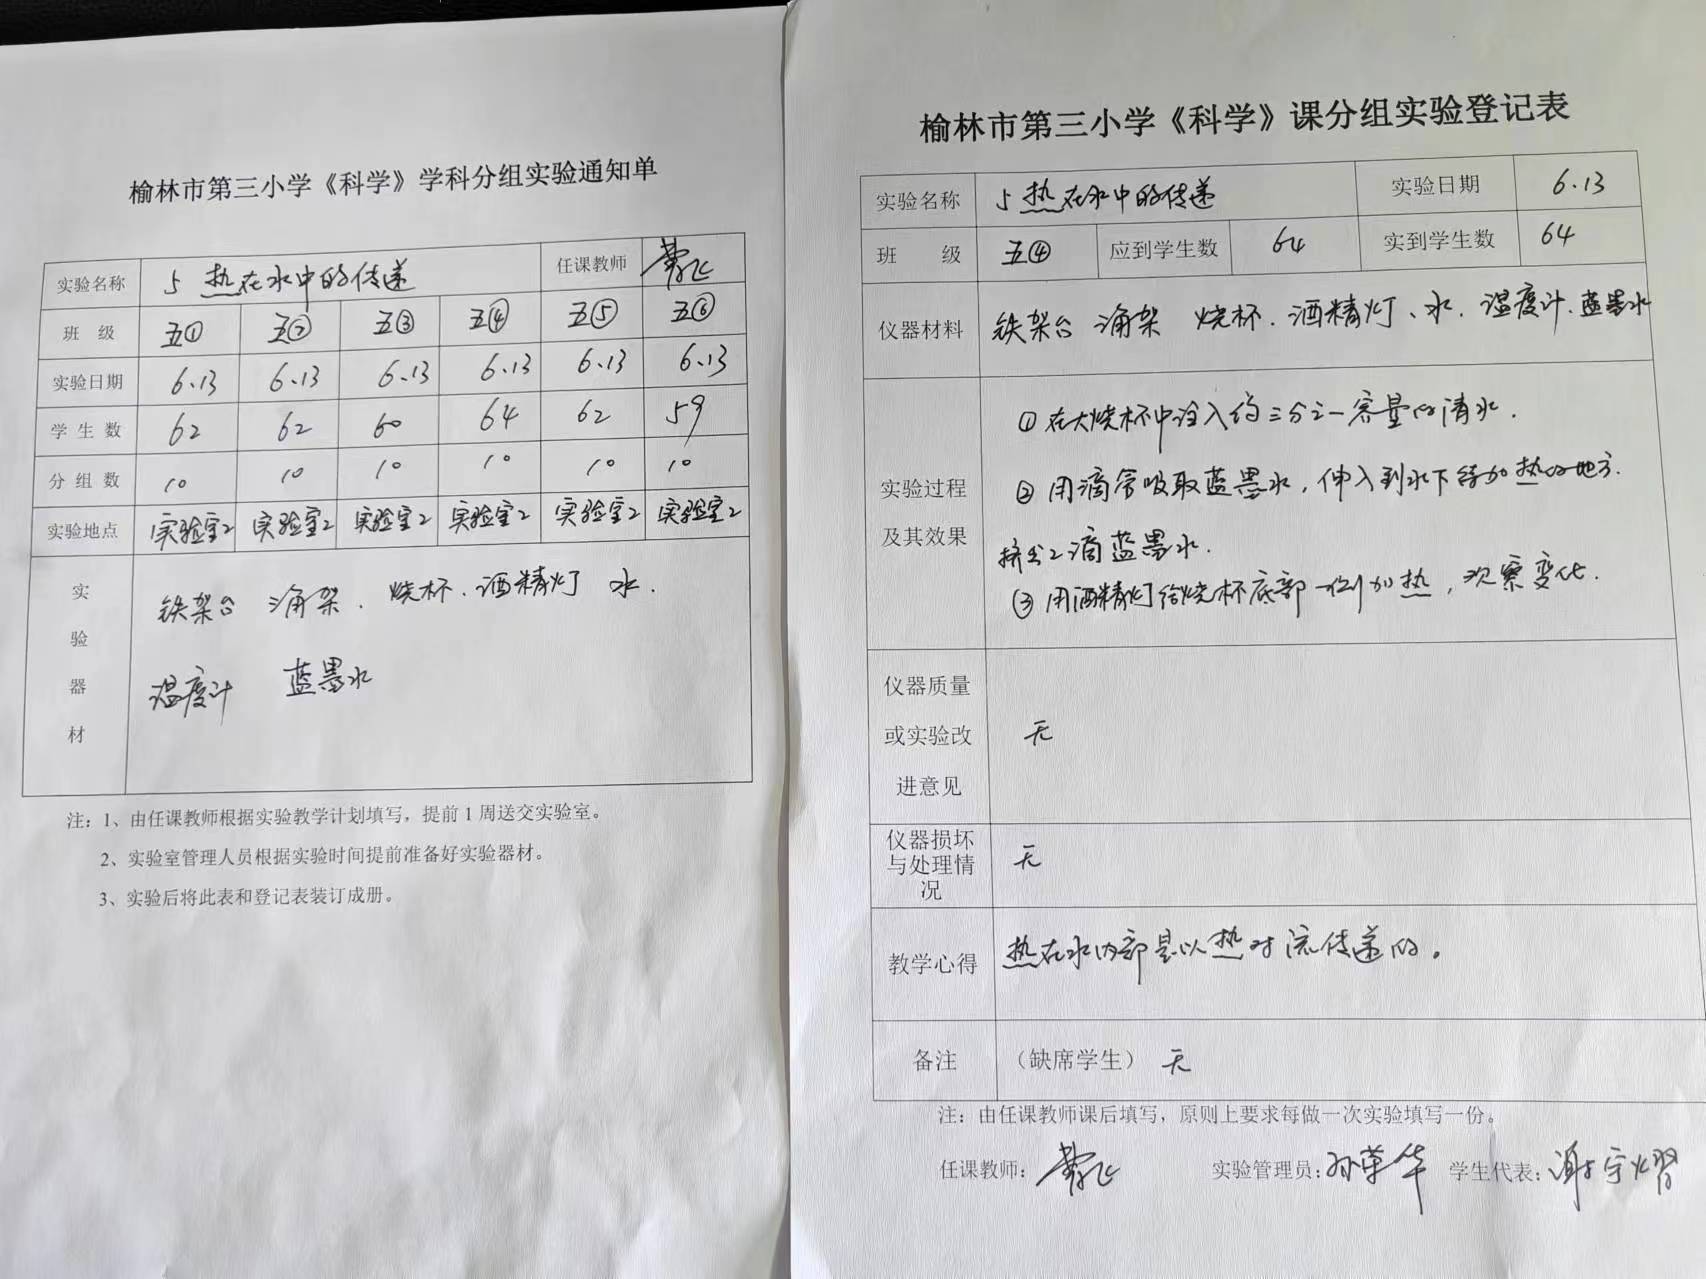 榆林市第三小学《科学》学科分组实验通知单
实验名称 5 热在水中的传递 任课教师
班 级 五① 五② 五③ 五④ 五⑤ 五⑥
实验日期 6.13 6.13 6.13 6.13 6.13 6.13
学 生 数 62 62 60 64 62 59
分 组 数 10 10 10 10 10 10
实验地点 实验室2 实验室2 实验室2 实验室2 实验室2 实验室2
实验器材
铁架台 三角架、烧杯、酒精灯 水、
温度计 蓝墨水
注：1、由任课教师根据实验教学计划填写，提前1周送交实验室。
2、实验室管理人员根据实验时间提前准备好实验器材。
3、实验后将此表和登记表装订成册。
榆林市第三小学《科学》课分组实验登记表
实验名称 5 热在水中的传递 实验日期 6.13
班 级 五④ 应到学生数 64 实到学生数 64
仪器材料 铁架台 三角架 烧杯、酒精灯、水、温度计、蓝墨水
实验过程及其效果
①在大烧杯中注入约三分之一容量的清水．
②用滴管吸取蓝墨水，伸入到水下待加热的地方．
挤出2滴蓝墨水．
③用酒精灯给烧杯底部一侧加热，观察变化．
仪器质量或实验改进意见 无
仪器损坏与处理情况 无
教学心得 热在水内部是以热对流传递的。
备注 （缺席学生） 无
注：由任课教师课后填写，原则上要求每做一次实验填写一份。
任课教师： 实验管理员：孙荣华 学生代表：谢宇熠